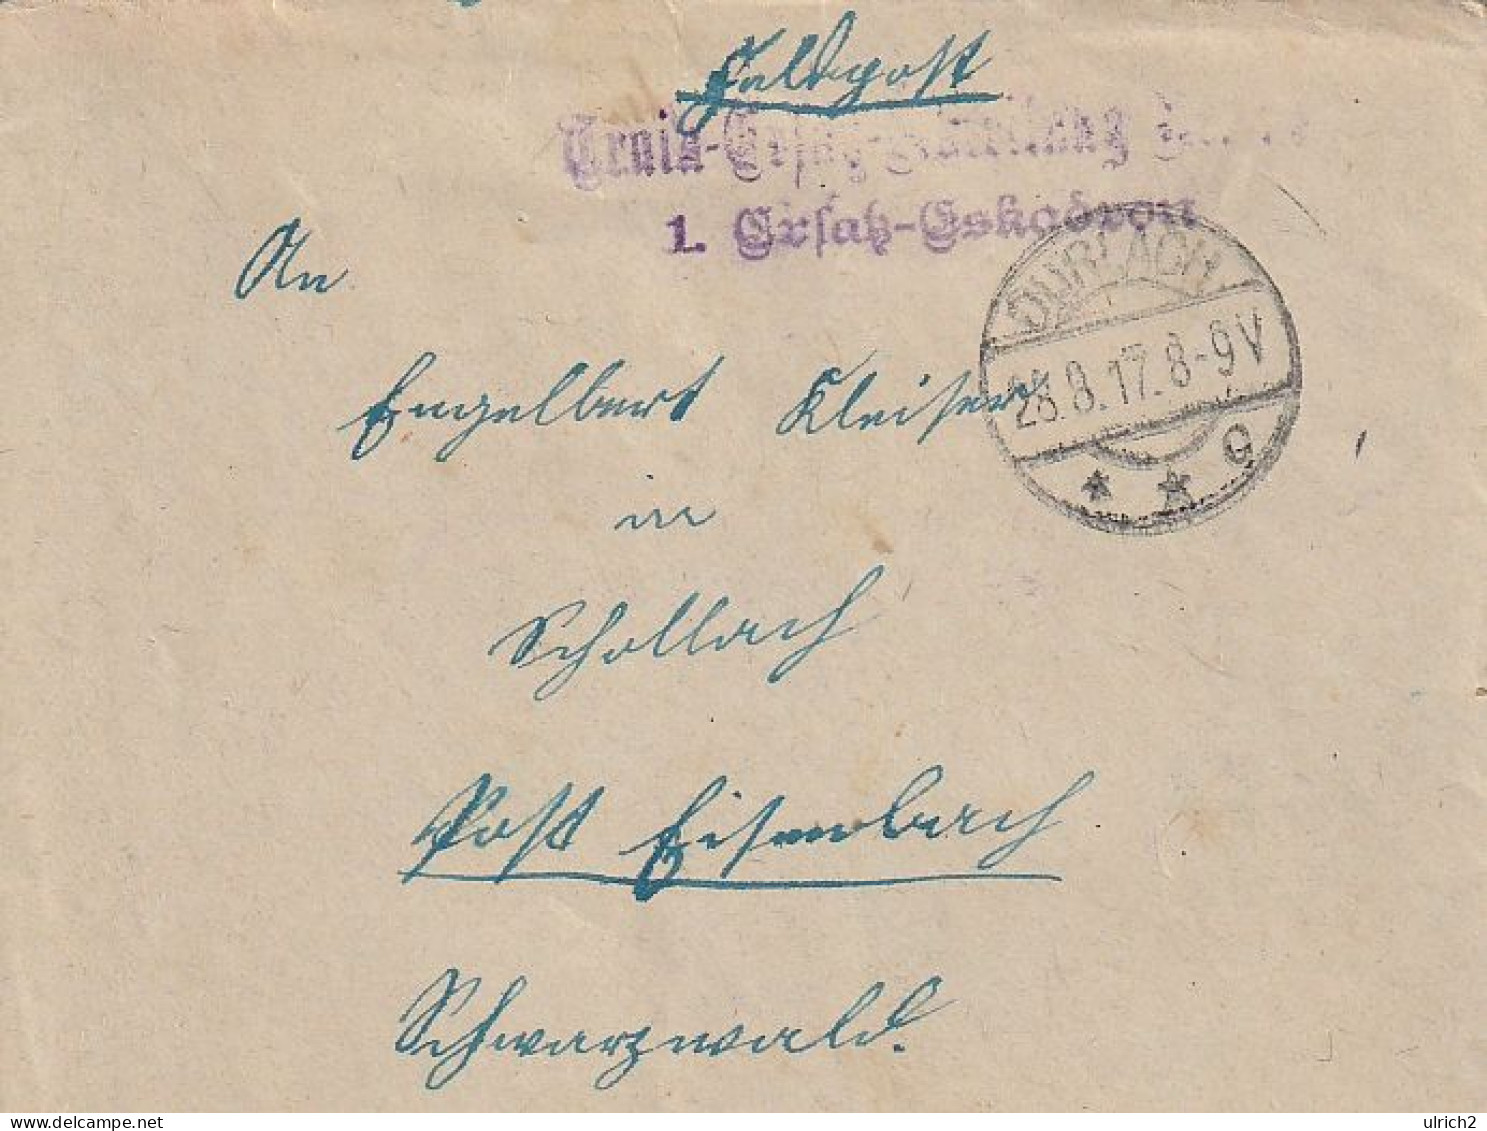 Feldpost
Train-Ersatz-Abteilung
1. Ersatz-Eskadron
DURLACH
28.8.17.8-9V
* * g
An
Engelbert Kleiser
in
Schollach
Post Eisenbach
Schwarzwald.
ulrich2